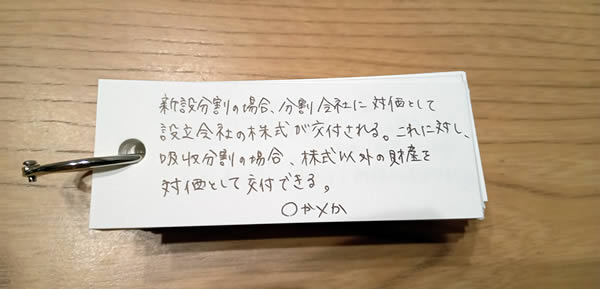 新設分割の場合、分割会社に対価として
設立会社の株式が交付される。これに対し、
吸収分割の場合、株式以外の財産を
対価として交付できる。
〇か×か